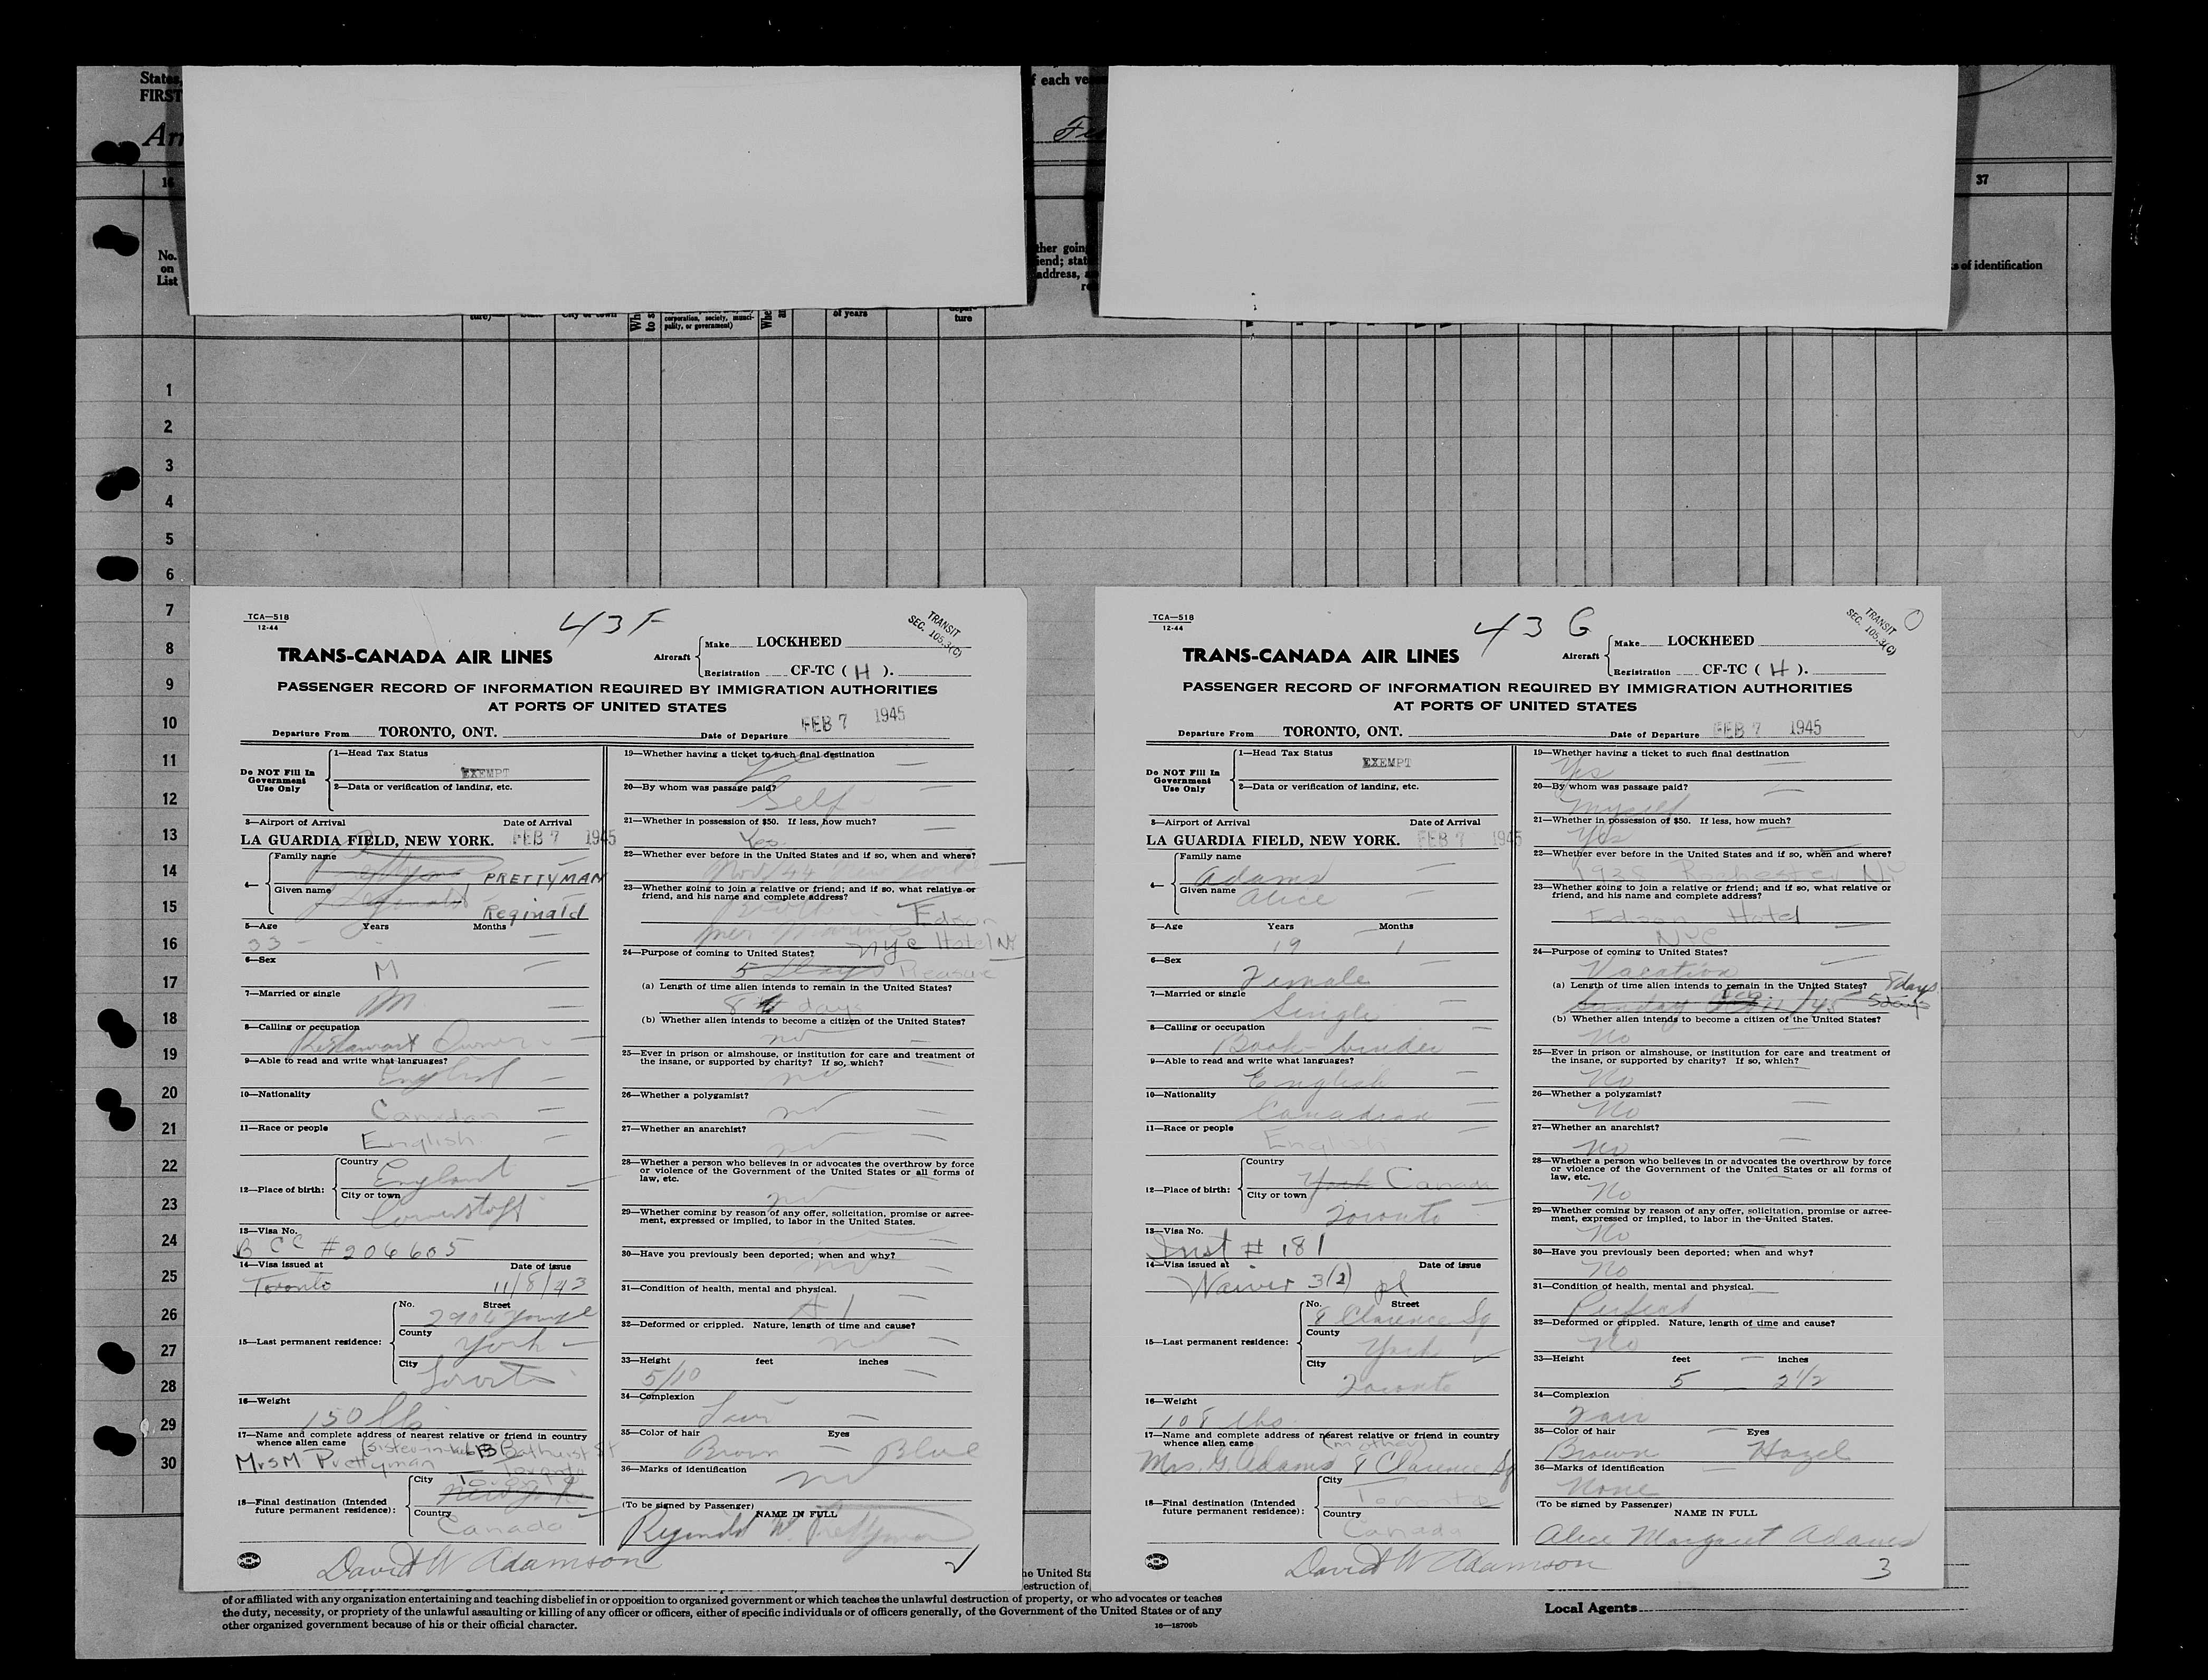 States,
FIRST
f each ve
37
No.
on
List
ther goin
iend; stat
address, a
s of identification
ture)
corporation, society, munici-
pality, or government)
of years
depar-
ture
1
2
3
4
5
6
7
8
9
10
11
12
13
14
15
16
17
18
19
20
21
22
23
24
25
26
27
28
29
30
TCA—518
12-44
43 F
TRANSIT
SEC. 105.3(C)
TRANS-CANADA AIR LINES
Aircraft
Make LOCKHEED
Registration CF-TC ( H ).
PASSENGER RECORD OF INFORMATION REQUIRED BY IMMIGRATION AUTHORITIES
AT PORTS OF UNITED STATES
Departure From TORONTO, ONT. Date of Departure FEB 7 1945
Do NOT Fill In
Government
Use Only
1—Head Tax Status
EXEMPT
2—Data or verification of landing, etc.
3—Airport of Arrival Date of Arrival
LA GUARDIA FIELD, NEW YORK. FEB 7 1945
4— Family name
PRETTYMAN
Given name
Reginald
5—Age Years Months
33
6—Sex
M
7—Married or single
M
8—Calling or occupation
Restaurant Owner
9—Able to read and write what languages?
English
10—Nationality
Canadian
11—Race or people
English
12—Place of birth:
Country
England
City or town
13—Visa No.
B CC #206605
14—Visa issued at Date of issue
Toronto 11/8/43
15—Last permanent residence:
No. Street
2906 Yonge
County
York
City
Toronto
16—Weight
150 lbs
17—Name and complete address of nearest relative or friend in country
whence alien came (sister-in-law) Bathurst St
Mrs M Prettyman Toronto
18—Final destination (Intended
future permanent residence):
City
Toronto
New York
Country
Canada
David W Adamson
19—Whether having a ticket to such final destination
Yes
20—By whom was passage paid?
Self
21—Whether in possession of $50. If less, how much?
Yes
22—Whether ever before in the United States and if so, when and where?
Nov/44 New York
23—Whether going to join a relative or friend; and if so, what relative or
friend, and his name and complete address?
Edson
NYC Hotel NY
24—Purpose of coming to United States?
5 days Pleasure
(a) Length of time alien intends to remain in the United States?
8 days
(b) Whether alien intends to become a citizen of the United States?
no
25—Ever in prison or almshouse, or institution for care and treatment of
the insane, or supported by charity? If so, which?
no
26—Whether a polygamist?
no
27—Whether an anarchist?
no
28—Whether a person who believes in or advocates the overthrow by force
or violence of the Government of the United States or all forms of
law, etc.
no
29—Whether coming by reason of any offer, solicitation, promise or agree-
ment, expressed or implied, to labor in the United States.
30—Have you previously been deported; when and why?
no
31—Condition of health, mental and physical.
A 1
32—Deformed or crippled. Nature, length of time and cause?
no
33—Height feet inches
5/10
34—Complexion
Fair
35—Color of hair Eyes
Brown Blue
36—Marks of identification
no
(To be signed by Passenger)
NAME IN FULL
Reginald W. Prettyman
TCA—518
12-44
43 G
TRANSIT
SEC. 105.3(C)
TRANS-CANADA AIR LINES
Aircraft
Make LOCKHEED
Registration CF-TC ( H ).
PASSENGER RECORD OF INFORMATION REQUIRED BY IMMIGRATION AUTHORITIES
AT PORTS OF UNITED STATES
Departure From TORONTO, ONT. Date of Departure FEB 7 1945
Do NOT Fill In
Government
Use Only
1—Head Tax Status
EXEMPT
2—Data or verification of landing, etc.
3—Airport of Arrival Date of Arrival
LA GUARDIA FIELD, NEW YORK. FEB 7 1945
4— Family name
Adams
Given name
Alice
5—Age Years Months
19 1
6—Sex
Female
7—Married or single
Single
8—Calling or occupation
Book-binder
9—Able to read and write what languages?
English
10—Nationality
Canadian
11—Race or people
English
12—Place of birth:
Country
York Canada
City or town
Toronto
13—Visa No.
Inst # 181
14—Visa issued at Date of issue
Waiver 3(2) pl
15—Last permanent residence:
No. Street
8 Clarence Sq
County
York
City
Toronto
16—Weight
108 lbs.
17—Name and complete address of nearest relative or friend in country
whence alien came (mother)
Mrs. G. Adams 8 Clarence Sq
18—Final destination (Intended
future permanent residence):
City
Toronto
Country
Canada
David W Adamson
19—Whether having a ticket to such final destination
Yes
20—By whom was passage paid?
Myself
21—Whether in possession of $50. If less, how much?
Yes
22—Whether ever before in the United States and if so, when and where?
Rochester NY
23—Whether going to join a relative or friend; and if so, what relative or
friend, and his name and complete address?
Edson Hotel
NYC
24—Purpose of coming to United States?
Vacation
(a) Length of time alien intends to remain in the United States? 8 days
Sunday 5 days
(b) Whether alien intends to become a citizen of the United States?
No
25—Ever in prison or almshouse, or institution for care and treatment of
the insane, or supported by charity? If so, which?
No
26—Whether a polygamist?
No
27—Whether an anarchist?
No
28—Whether a person who believes in or advocates the overthrow by force
or violence of the Government of the United States or all forms of
law, etc.
No
29—Whether coming by reason of any offer, solicitation, promise or agree-
ment, expressed or implied, to labor in the United States.
No
30—Have you previously been deported; when and why?
No
31—Condition of health, mental and physical.
Perfect
32—Deformed or crippled. Nature, length of time and cause?
No
33—Height feet inches
5 2 1/2
34—Complexion
Fair
35—Color of hair Eyes
Brown Hazel
36—Marks of identification
None
(To be signed by Passenger)
NAME IN FULL
Alice Margaret Adams
3
he United Sta
estruction of
of or affiliated with any organization entertaining and teaching disbelief in or opposition to organized government or which teaches the unlawful destruction of property, or who advocates or teaches
the duty, necessity, or propriety of the unlawful assaulting or killing of any officer or officers, either of specific individuals or of officers generally, of the Government of the United States or of any
other organized government because of his or their official character.
16—18709b
Local Agents